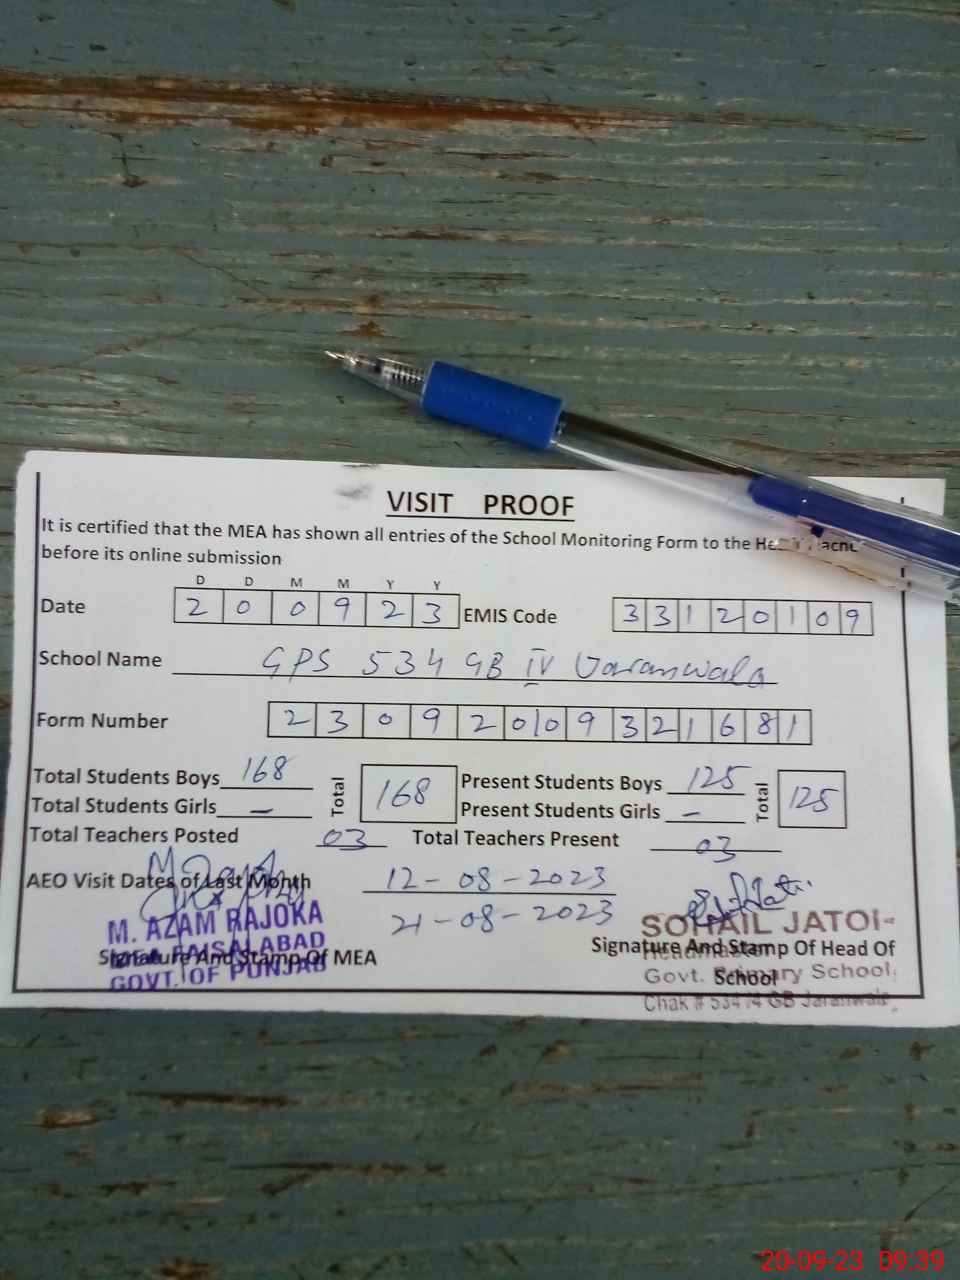 VISIT PROOF
It is certified that the MEA has shown all entries of the School Monitoring Form to the
before its online submission
D D M M Y Y
Date 2 0 0 9 2 3 EMIS Code 3 3 1 2 0 1 0 9
School Name GPS 534 GB IV Jaranwala
Form Number 2 3 0 9 2 0 1 0 9 3 2 1 6 8 1
Total Students Boys 168 Total 168 Present Students Boys 125 Total 125
Total Students Girls — Present Students Girls —
Total Teachers Posted 03 Total Teachers Present 03
AEO Visit Dates of Last Month 12-08-2023
21-08-2023
M. AZAM RAJOKA
FAISALABAD
GOVT. OF PUNJAB
Signature And Stamp Of MEA
SOHAIL JATOI
Headmaster
Signature And Stamp Of Head Of
School
Govt. Primary School,
Chak # 534/4 GB Jaranwala
20-09-23 09:39